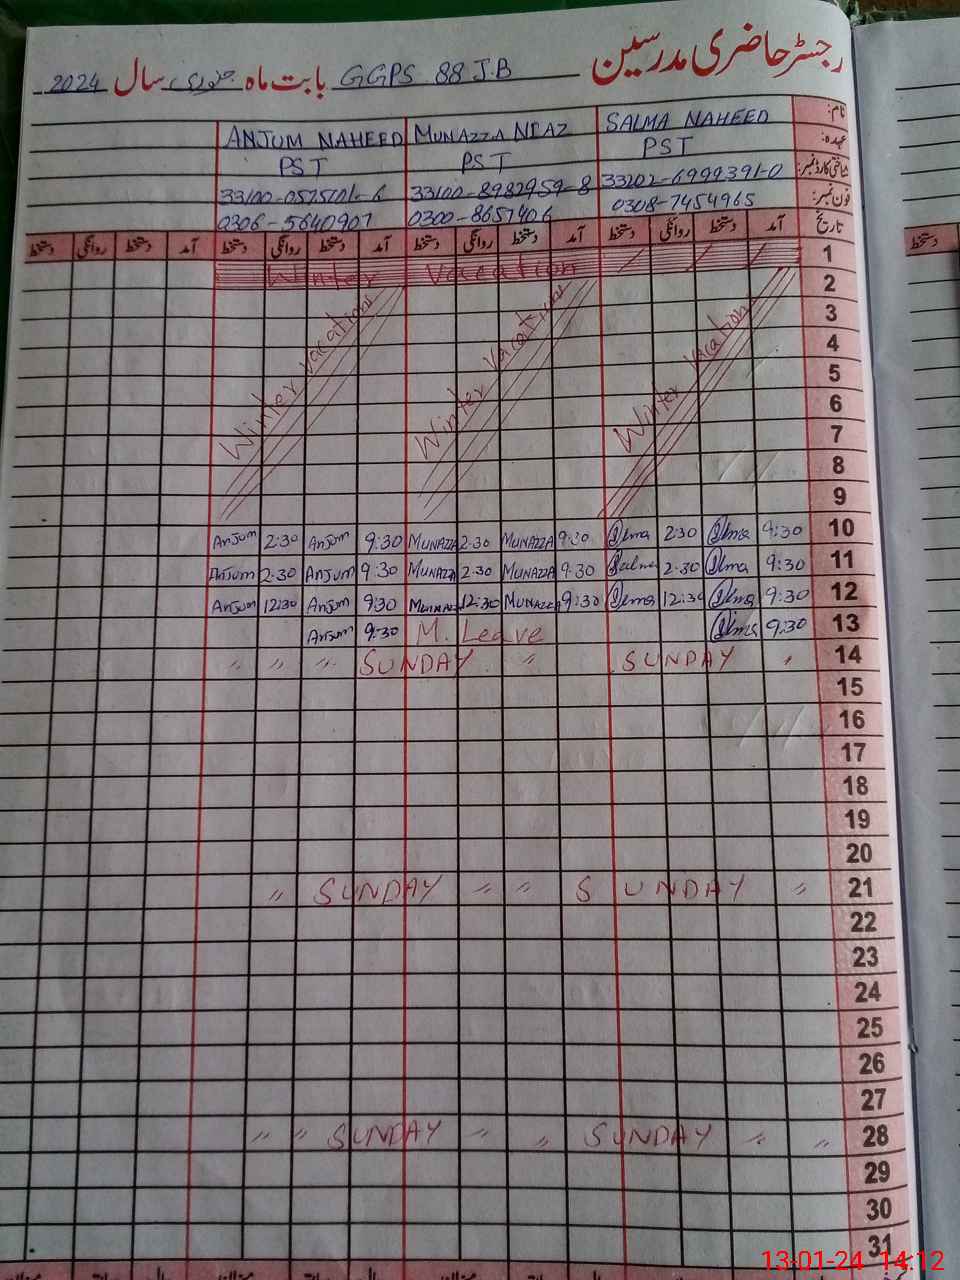 رجسٹر حاضری مدرسین GGPS 88 J.B بابت ماہ جنوری سال 2024
نام: SALMA NAHEED MUNAZZA NEAZ ANJUM NAHEED
عہدہ: PST PST PST
شناختی کارڈ نمبر: 33202-6999391-0 33100-8982959-8 33100-0575701-6
فون نمبر: 0308-7454965 0300-8657406 0306-5640907
تاریخ آمد دستخط روانگی دستخط آمد دستخط روانگی دستخط آمد دستخط روانگی دستخط آمد دستخط روانگی دستخط
1 Winter Vacation
2
3
4
5
6
7
8
9
Winter Vacation Winter Vacation Winter Vacation
10 9:30 Salma 2:30 Salma 9:30 MUNAZZA 2:30 MUNAZZA 9:30 Anjum 2:30 Anjum
11 9:30 Salma 2:30 Salma 9:30 MUNAZZA 2:30 MUNAZZA 9:30 Anjum 2:30 Anjum
12 9:30 Salma 12:30 Salma 9:30 MUNAZZA 12:30 MUNAZZA 9:30 Anjum 12:30 Anjum
13 9:30 Salma M. Leave 9:30 Anjum
14 〃 SUNDAY 〃 SUNDAY 〃 〃 〃
15
16
17
18
19
20
21 〃 SUNDAY 〃 〃 SUNDAY 〃
22
23
24
25
26
27
28 〃 〃 SUNDAY 〃 〃 SUNDAY 〃 〃
29
30
31
13-01-24 14:12